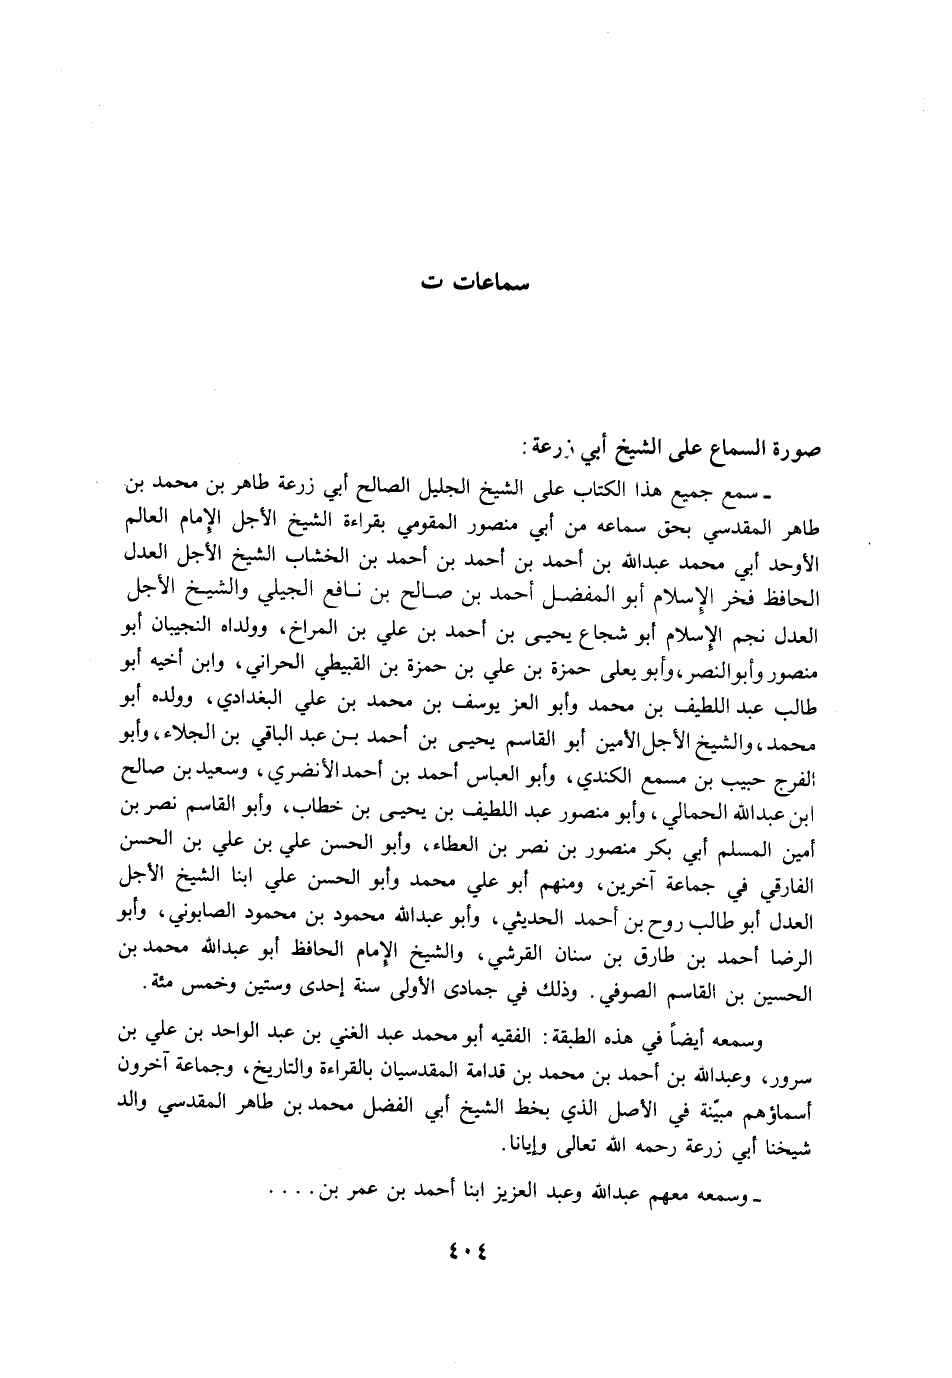 سماعات ت
صورة السماع على الشيخ أبي زرعة :
ـ سمع جميع هذا الكتاب على الشيخ الجليل الصالح أبي زرعة طاهر بن محمد بن
طاهر المقدسي بحق سماعه من أبي منصور المقومي بقراءة الشيخ الأجل الإمام العالم
الأوحد أبي محمد عبدالله بن أحمد بن أحمد بن أحمد بن الخشاب الشيخ الأجل العدل
الحافظ فخر الإسلام أبو المفضل أحمد بن صالح بن نافع الجيلي والشيخ الأجل
العدل نجم الإسلام أبو شجاع يحيى بن أحمد بن علي بن المراخ، وولداه النجيبان أبو
منصور وأبو النصر، وأبو يعلى حمزة بن علي بن حمزة بن القبيطي الحراني، وابن أخيه أبو
طالب عبد اللطيف بن محمد وأبو العز يوسف بن محمد بن علي البغدادي، وولده أبو
محمد، والشيخ الأجل الأمين أبو القاسم يحيى بن أحمد بن عبد الباقي بن الجلاء، وأبو
الفرج حبيب بن مسمع الكندي، وأبو العباس أحمد بن أحمد الأنضري، وسعيد بن صالح
ابن عبدالله الحمالي، وأبو منصور عبد اللطيف بن يحيى بن خطاب، وأبو القاسم نصر بن
أمين المسلم أبي بكر منصور بن نصر بن العطاء، وأبو الحسن علي بن علي بن الحسن
الفارقي في جماعة آخرين، ومنهم أبو علي محمد وأبو الحسن علي ابنا الشيخ الأجل
العدل أبو طالب روح بن أحمد الحديثي، وأبو عبدالله محمود بن محمود الصابوني، وأبو
الرضا أحمد بن طارق بن سنان القرشي، والشيخ الإمام الحافظ أبو عبدالله محمد بن
الحسين بن القاسم الصوفي. وذلك في جمادى الأولى سنة إحدى وستين وخمس مئة.
وسمعه أيضاً في هذه الطبقة: الفقيه أبو محمد عبد الغني بن عبد الواحد بن علي بن
سرور، وعبدالله بن أحمد بن محمد بن قدامة المقدسيان بالقراءة والتاريخ، وجماعة آخرون
أسماؤهم مبيّنة في الأصل الذي بخط الشيخ أبي الفضل محمد بن طاهر المقدسي والد
شيخنا أبي زرعة رحمه الله تعالى وإيانا.
ـ وسمعه معهم عبدالله وعبد العزيز ابنا أحمد بن عمر بن . . . .
٤٠٤